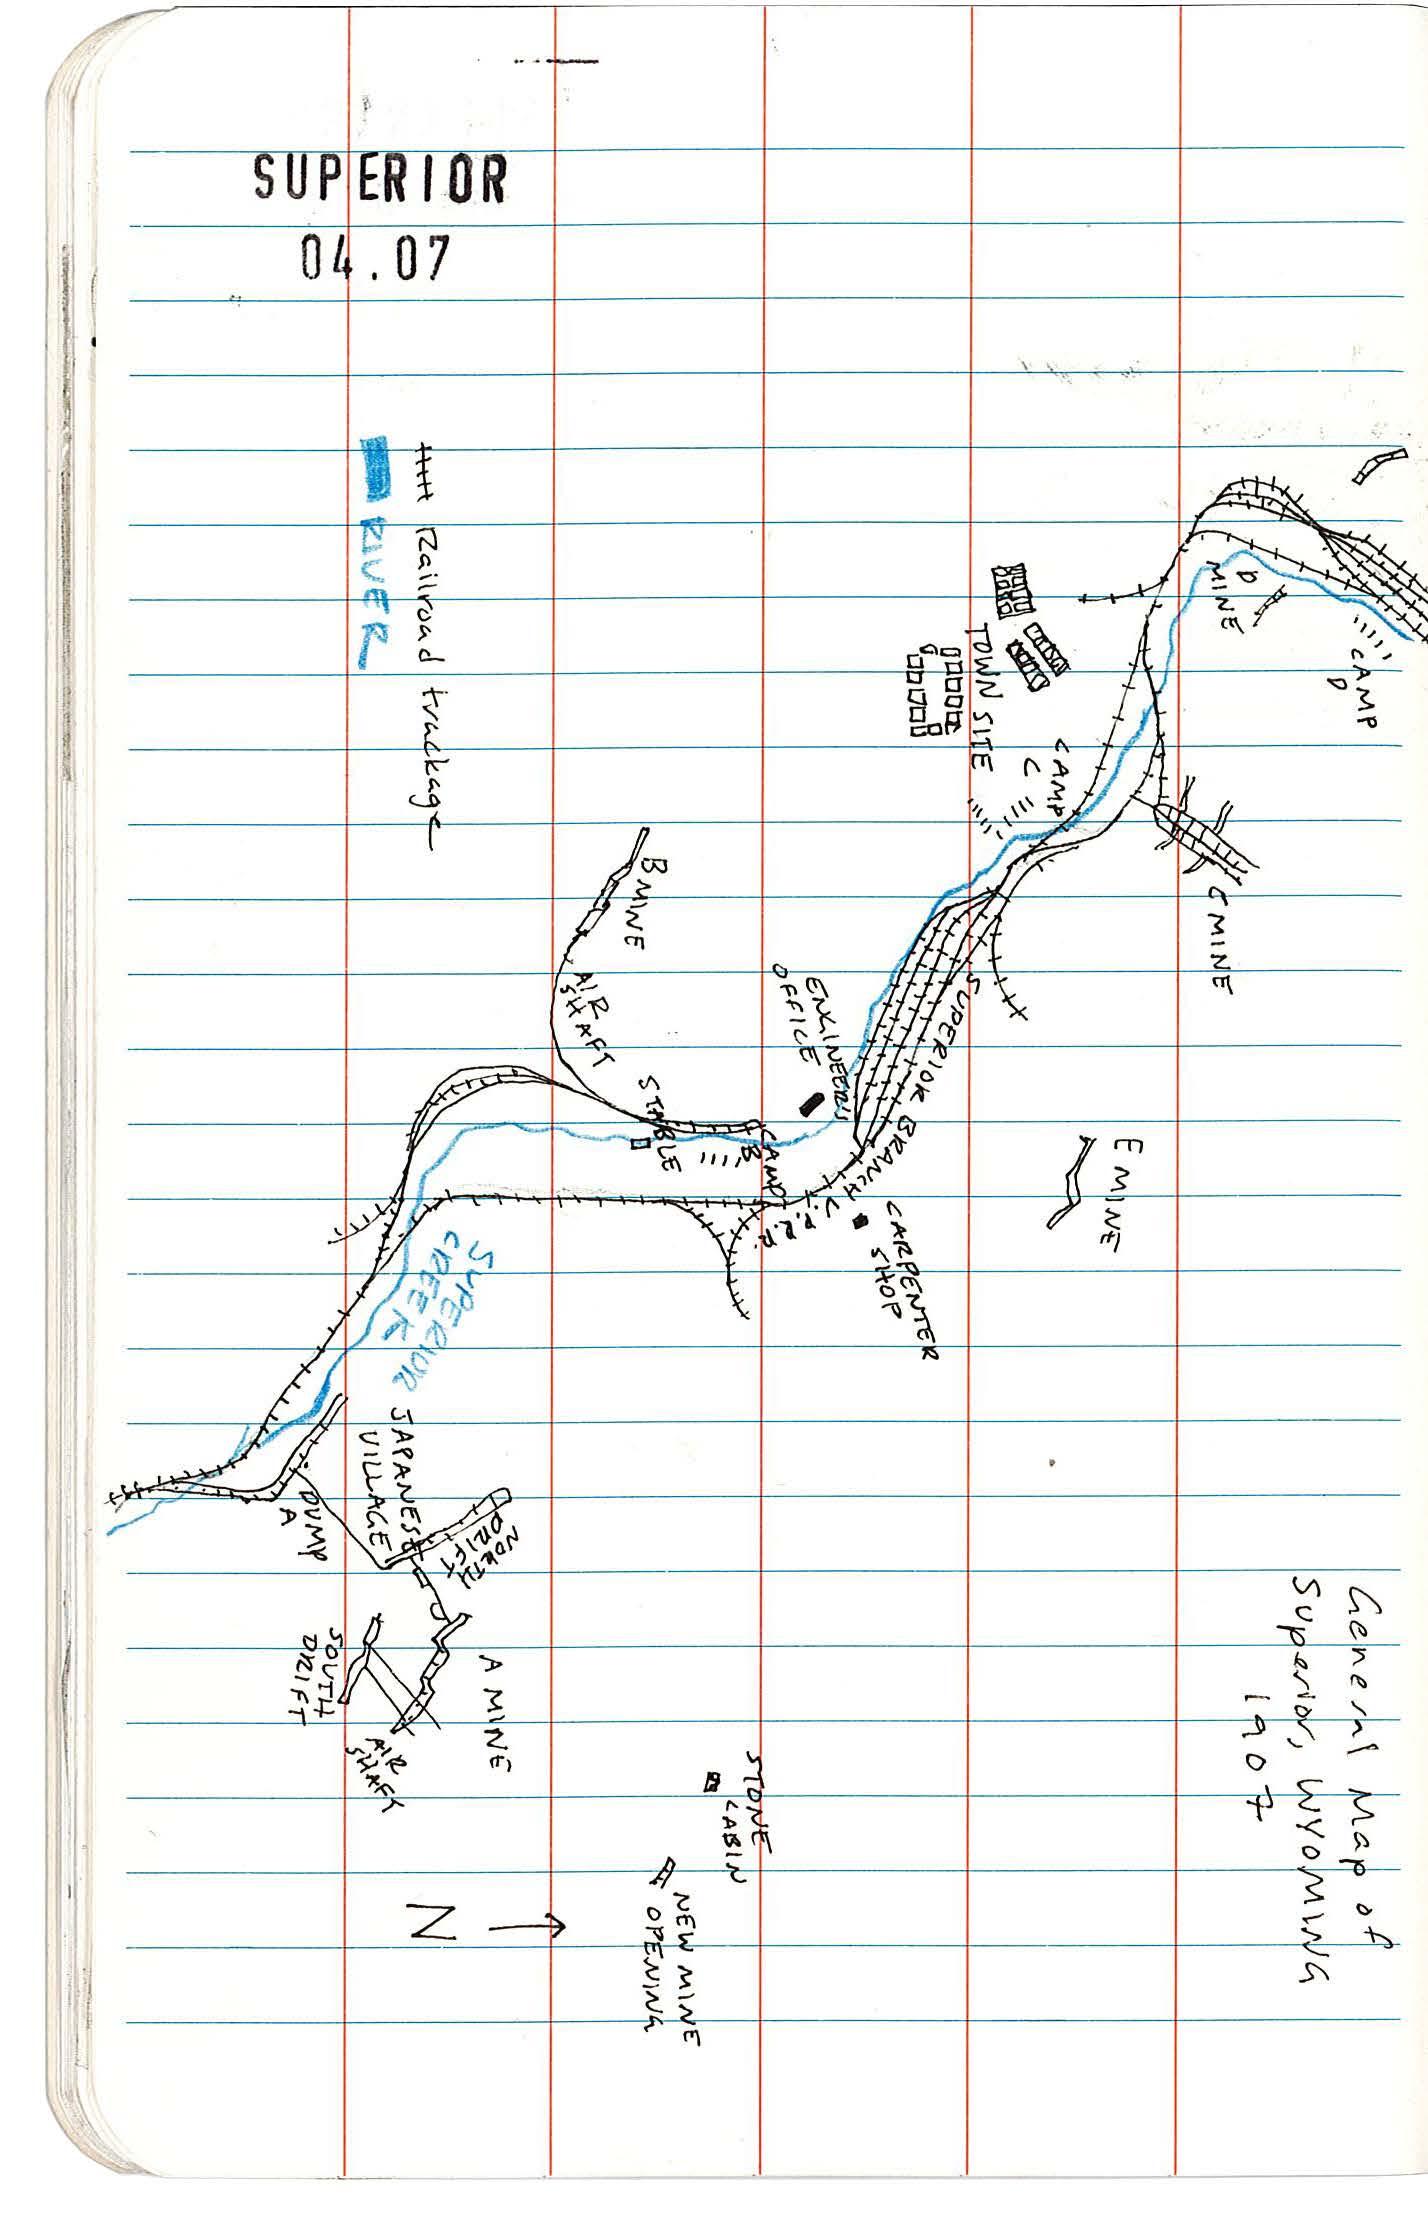 SUPERIOR
04.07
General Map of
Superior, WYOMING
1907
Railroad trackage
RIVER
CAMP
D
D
MINE
C MINE
TOWN SITE
CAMP
C
SUPERIOR BRANCH U.P.R.R.
E MINE
ENGINEER'S
OFFICE
CARPENTER
SHOP
B MINE
AIR
SHAFT
STABLE
CAMP
B
SUPERIOR
CREEK
JAPANESE
VILLAGE
DUMP
A
NORTH
DRIFT
SOUTH
DRIFT
A MINE
AIR
SHAFT
STONE
CABIN
NEW MINE
OPENING
N